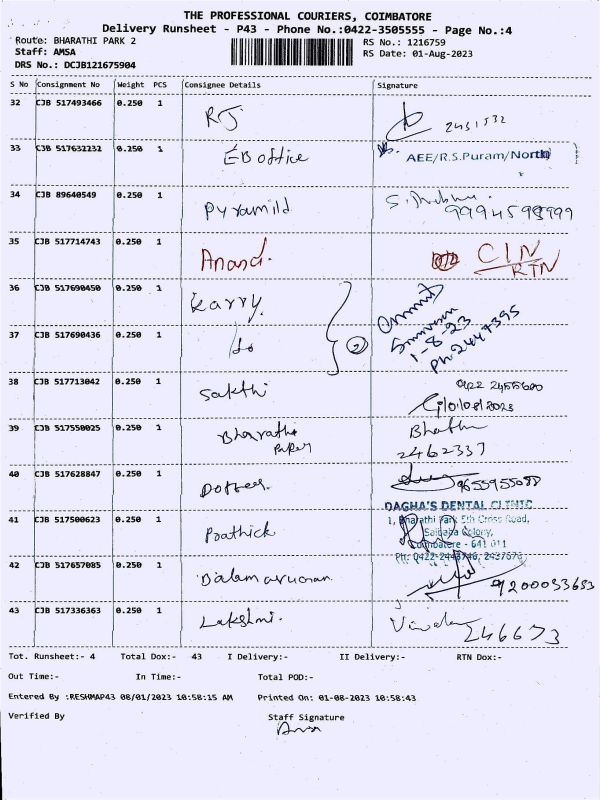 THE PROFESSIONAL COURIERS, COIMBATORE
Delivery Runsheet - P43 - Phone No.:0422-3505555 - Page No.:4
Route: BHARATHI PARK 2 RS No.: 1216759
Staff: AMSA RS Date: 01-Aug-2023
DRS No.: DCJB121675904
S No Consignment No Weight PCS Consignee Details Signature
32 CJB 517493466 0.250 1 RJ 2431532
33 CJB 517632232 0.250 1 EB office AEE/R.S.Puram/North
34 CJB 89640549 0.250 1 Pyramild S. Prabhu. 9994598999
35 CJB 517714743 0.250 1 Anand. CIN
RTN
36 CJB 517690450 0.250 1 Karry.
37 CJB 517690436 0.250 1 do 2 1-8-23
Ph: 2447395
38 CJB 517713042 0.250 1 Sakthi 0422 2455600
01/08/2023
39 CJB 517550025 0.250 1 Bharathi
2462337
40 CJB 517628847 0.250 1 9655955088
DAGHA'S DENTAL CLINIC
41 CJB 517500623 0.250 1 Prathick 1, Bharathi Park 5th Cross Road,
Saibaba Colony,
Coimbatore - 641 011
Ph: 0422-2443746, 2437673
42 CJB 517657085 0.250 1 Balamurugan 9200033653
43 CJB 517336363 0.250 1 Lakshmi. 246673
Tot. Runsheet:- 4 Total Dox:- 43 I Delivery:- II Delivery:- RTN Dox:-
Out Time:- In Time:- Total POD:-
Entered By :RESHMAP43 08/01/2023 10:58:15 AM Printed On: 01-08-2023 10:58:43
Verified By Staff Signature
Amsa